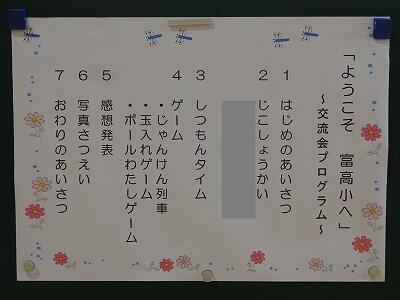 「ようこそ　富高小へ」
～交流会プログラム～
1　はじめのあいさつ
2　じこしょうかい
3　しつもんタイム
4　ゲーム
・じゃんけん列車
・玉入れゲーム
・ボールわたしゲーム
5　感想発表
6　写真さつえい
7　おわりのあいさつ